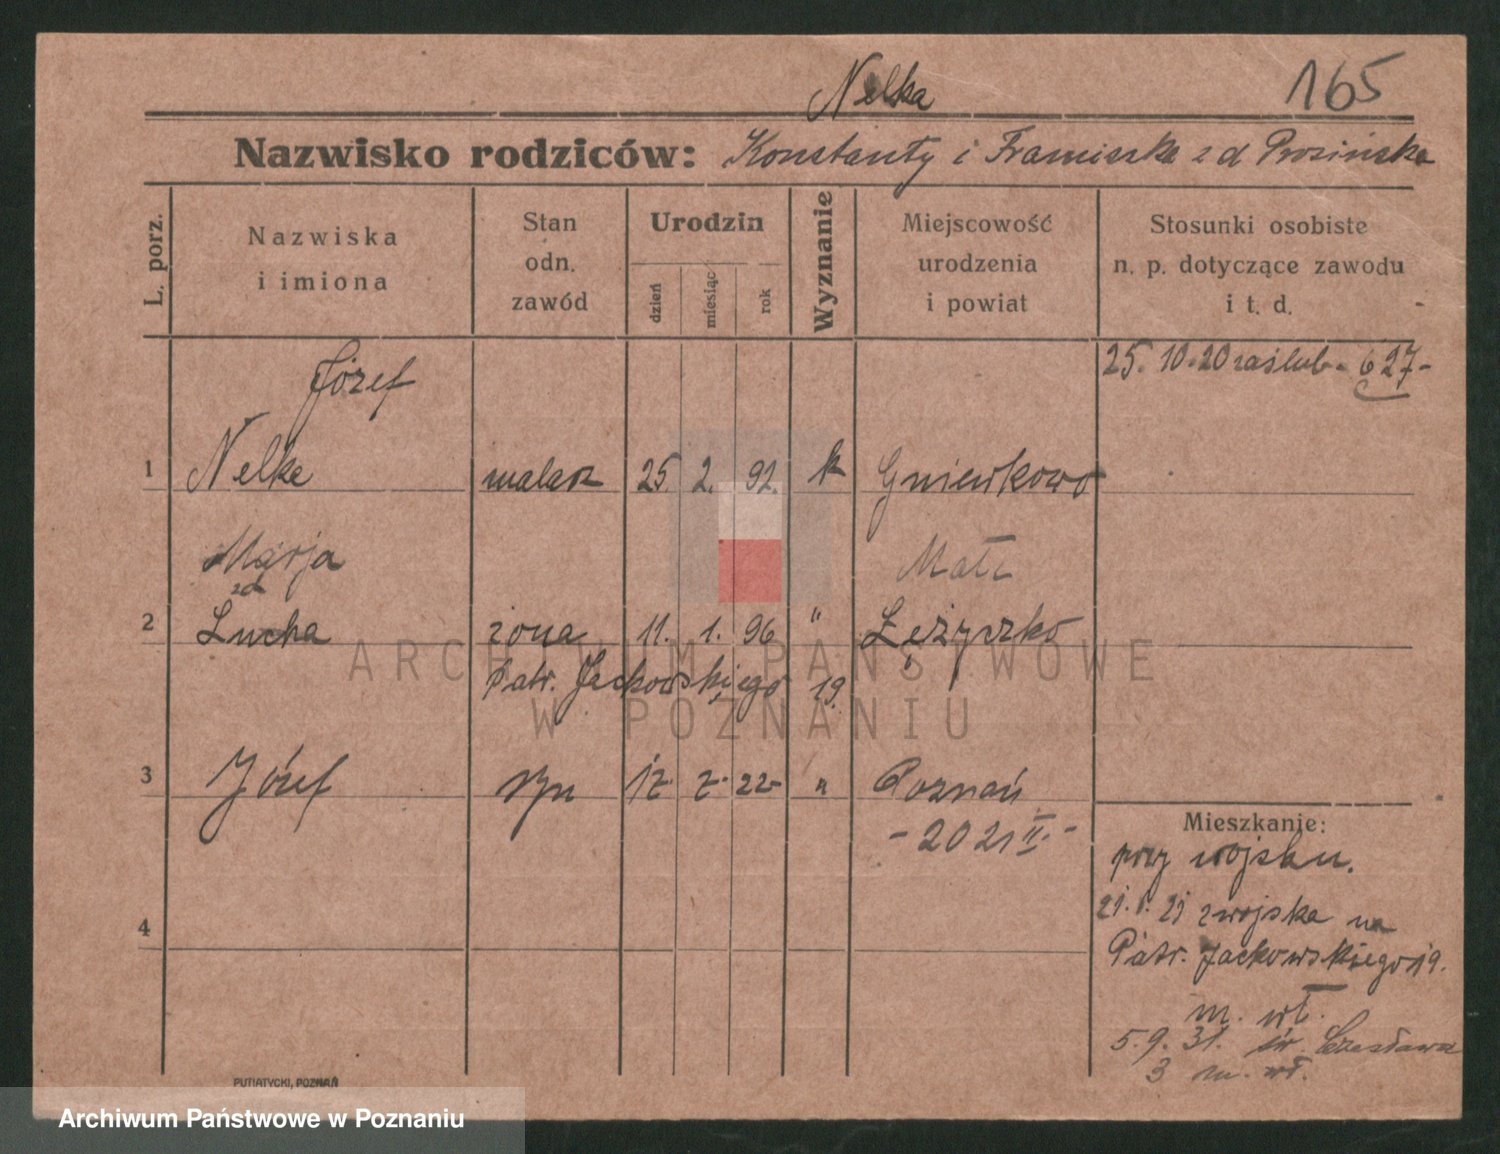 Nelka
165
Nazwisko rodziców: Konstanty i Franciszka z d Prosińska
L. porz.
Nazwiska i imiona
Stan odn. zawód
Urodzin
dzień
miesiąc
rok
Wyznanie
Miejscowość urodzenia i powiat
Stosunki osobiste n. p. dotyczące zawodu i t. d.
25. 10. 20 zaślub. 627
Józef
1 Nelke malarz 25. 2. 92. k Gniewkowo
Marja Małz
zd
2 Lucha żona 11. 1. 96 " Leżyszko
Patr. Jackowskiego 19
3 Józef syn 12. 2. 22 " Poznań
- 20 21 II. -
4
Mieszkanie:
przy wojsku.
21. 1. 21 z wojska na
Patr. Jackowskiego 19.
m. wł.
5. 9. 31. św. Czesława
3 m. wł.
PUTIATYCKI, POZNAŃ
ARCHIWUM PAŃSTWOWE
W POZNANIU
Archiwum Państwowe w Poznaniu